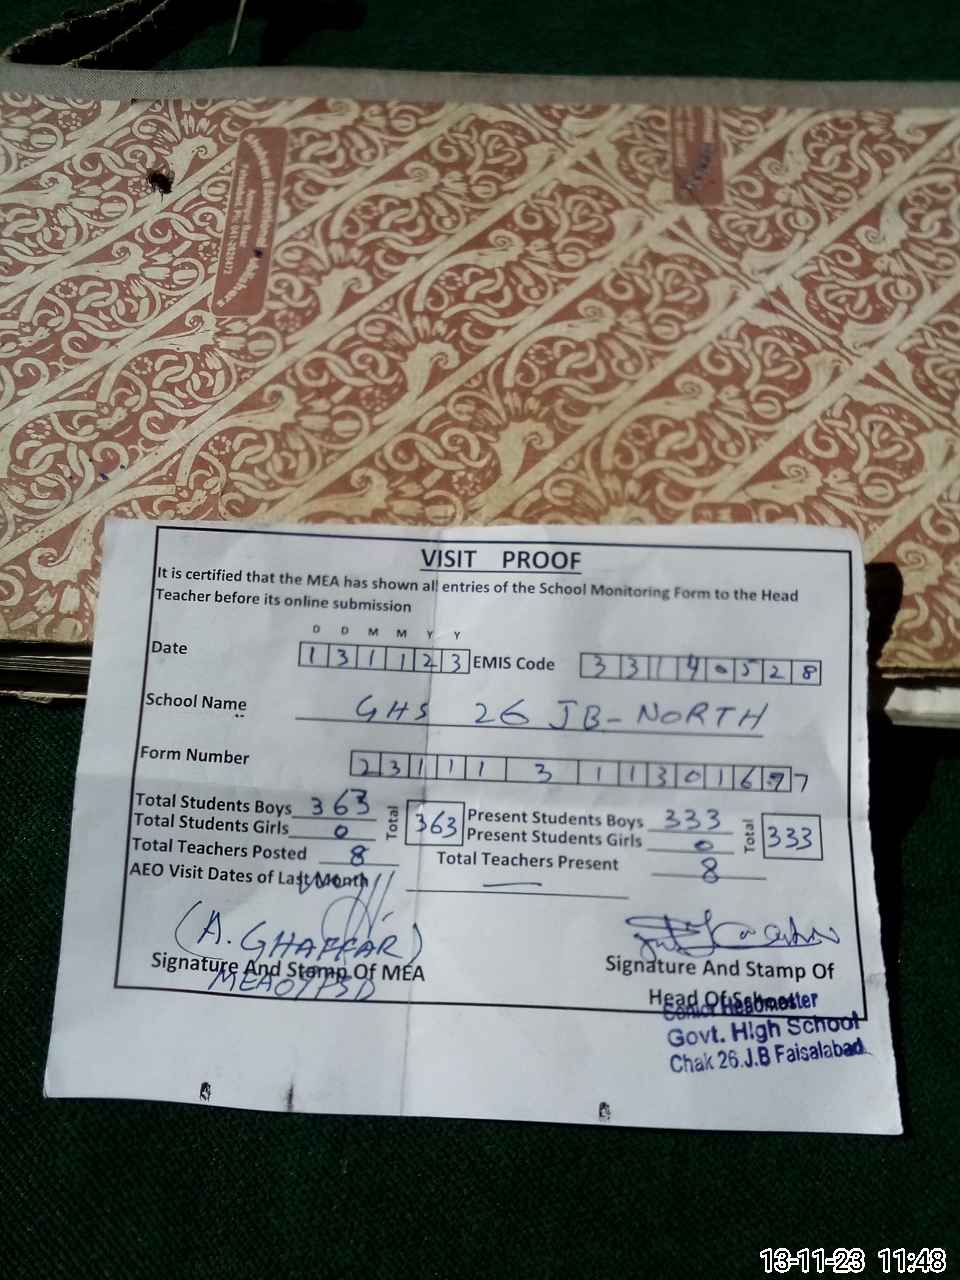 VISIT PROOF
It is certified that the MEA has shown all entries of the School Monitoring Form to the Head
Teacher before its online submission
D D M M Y Y
Date 1 3 1 1 2 3 EMIS Code 3 3 1 4 0 5 2 8
School Name GHS 26 JB-NORTH
Form Number 2 3 1 1 1 3 1 1 3 0 1 6 7 7
Total Students Boys 363 Total 363 Present Students Boys 333 Total 333
Total Students Girls 0 Present Students Girls 0
Total Teachers Posted 8 Total Teachers Present 8
AEO Visit Dates of Last Month —
(A. GHAFFAR)
Signature And Stamp Of MEA
Signature And Stamp Of
Head Of School
Senior Headmaster
Govt. High School
Chak 26.J.B Faisalabad
13-11-23 11:48